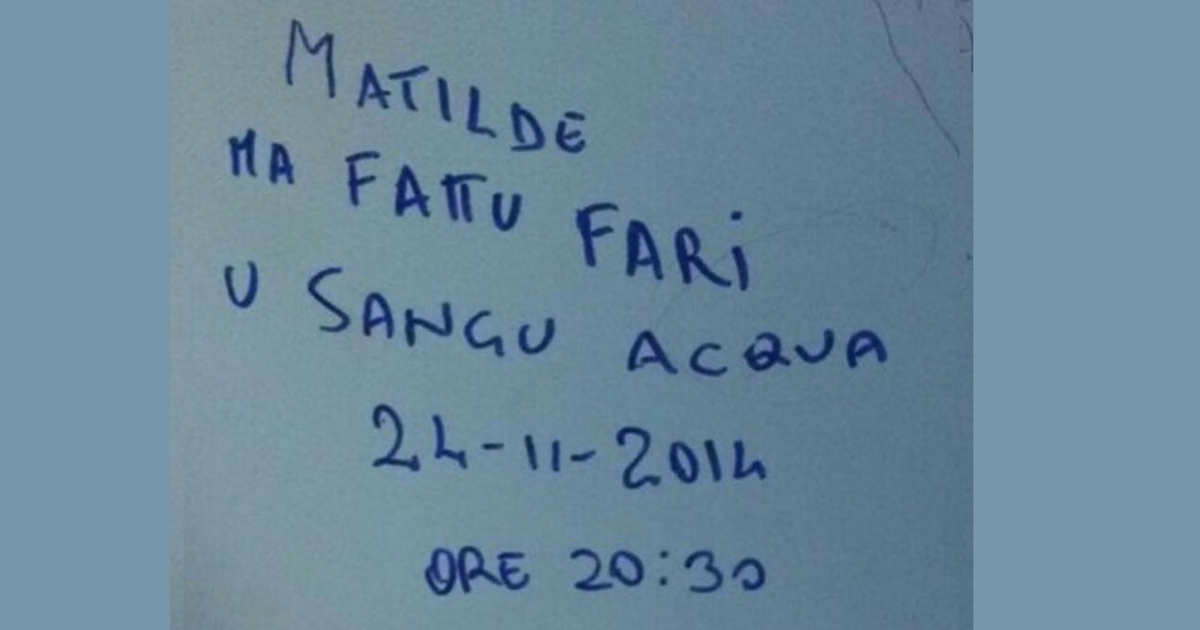 MATILDE
MA FATTU FARi
U SANGU ACQUA
24-11-2014
ORE 20:30